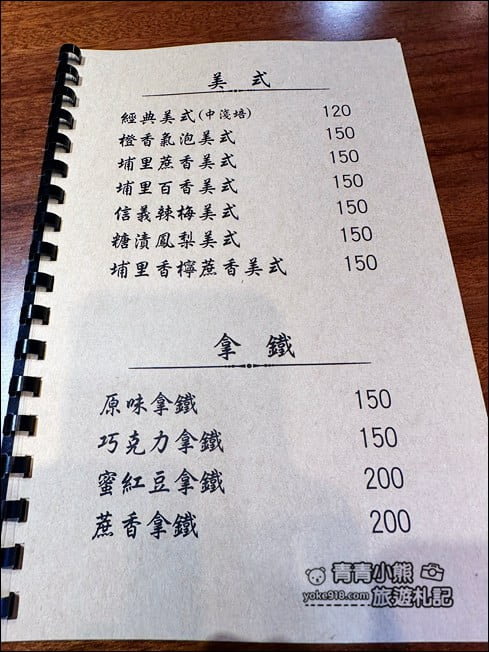 美式
經典美式(中淺培) 120
橙香氣泡美式 150
埔里蔗香美式 150
埔里百香美式 150
信義辣梅美式 150
糖漬鳳梨美式 150
埔里香檸蔗香美式 150
拿鐵
原味拿鐵 150
巧克力拿鐵 150
蜜紅豆拿鐵 200
蔗香拿鐵 200
青青小熊
yoke918.com 旅遊札記